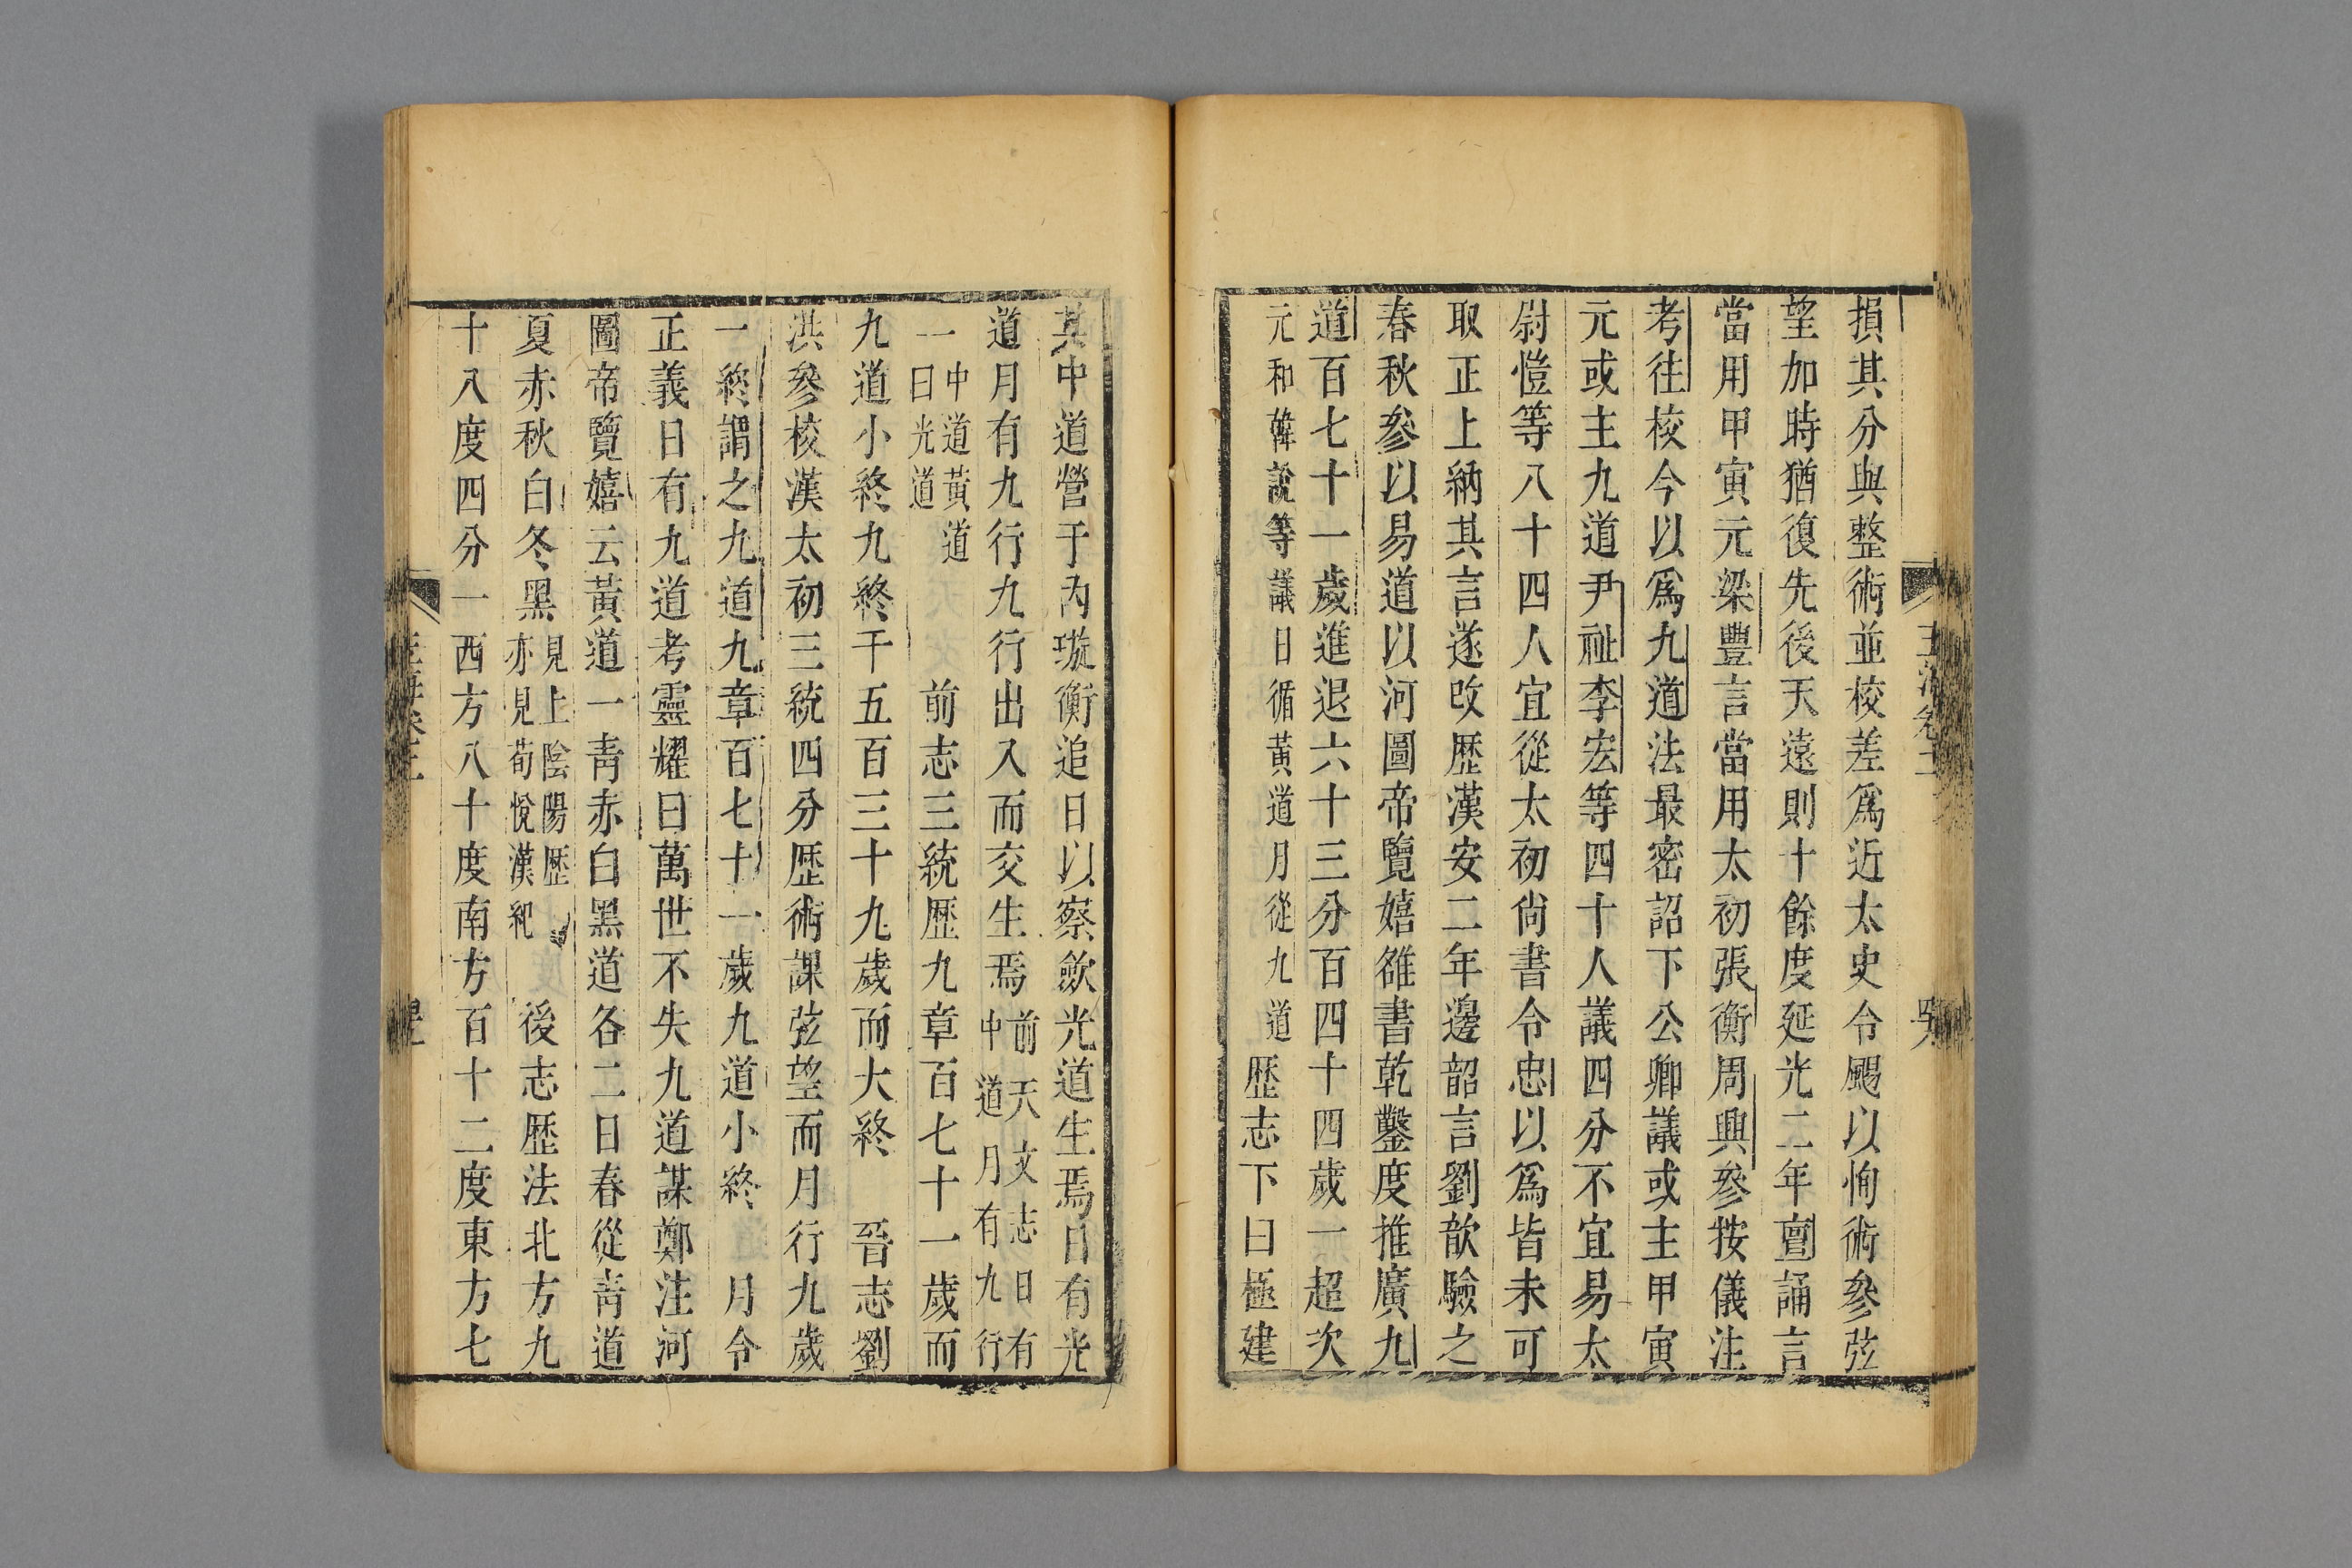 損其分與整術並校差爲近太史令颺以恂術參弦
望加時猶復先後天遠則十餘度延光二年亶誦言
當用甲寅元梁豐言當用太初張衡周興參按儀注
考往校今以爲九道法最密詔下公卿議或主甲寅
元或主九道尹祉李宏等四十人議四分不宜易太
尉愷等八十四人宜從太初尙書令忠以爲皆未可
取正上納其言遂改歷漢安二年邊韶言劉歆驗之
春秋參以易道以河圖帝覽嬉雒書乾鑿度推廣九
道百七十一歲進退六十三分百四十四歲一超次
元和韓說等議日循黃道月從九道
歷志下曰極建
其中道營于內璇衡追日以察歛光道生焉日有光
道月有九行九行出入而交生焉
前天文志日有
中道月有九行
中道黃道
一曰光道
前志三統歷九章百七十一歲而
九道小終九終千五百三十九歲而大終 晉志劉
洪參校漢太初三統四分歷術課弦望而月行九歲
一終謂之九道九章百七十一歲九道小終 月令
正義日有九道考靈耀曰萬世不失九道謀鄭注河
圖帝覽嬉云黃道一靑赤白黑道各二日春從靑道
夏赤秋白冬黑
見上陰陽歷
亦見荀悅漢紀
後志歷法北方九
十八度四分一西方八十度南方百十二度東方七